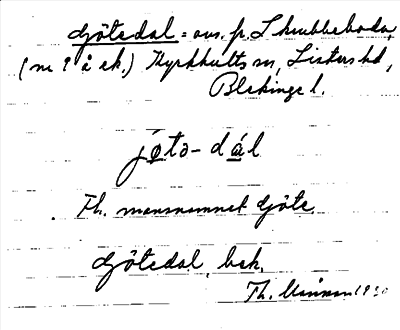 Götedal = ovs. på Skrubbeboda,
( ek.) Kyrkhults sn, Listers hd,
Blekinge l.
jøtə-dál
Th. mansnamnet Göte.
Götedal, bek.
Th. 1930